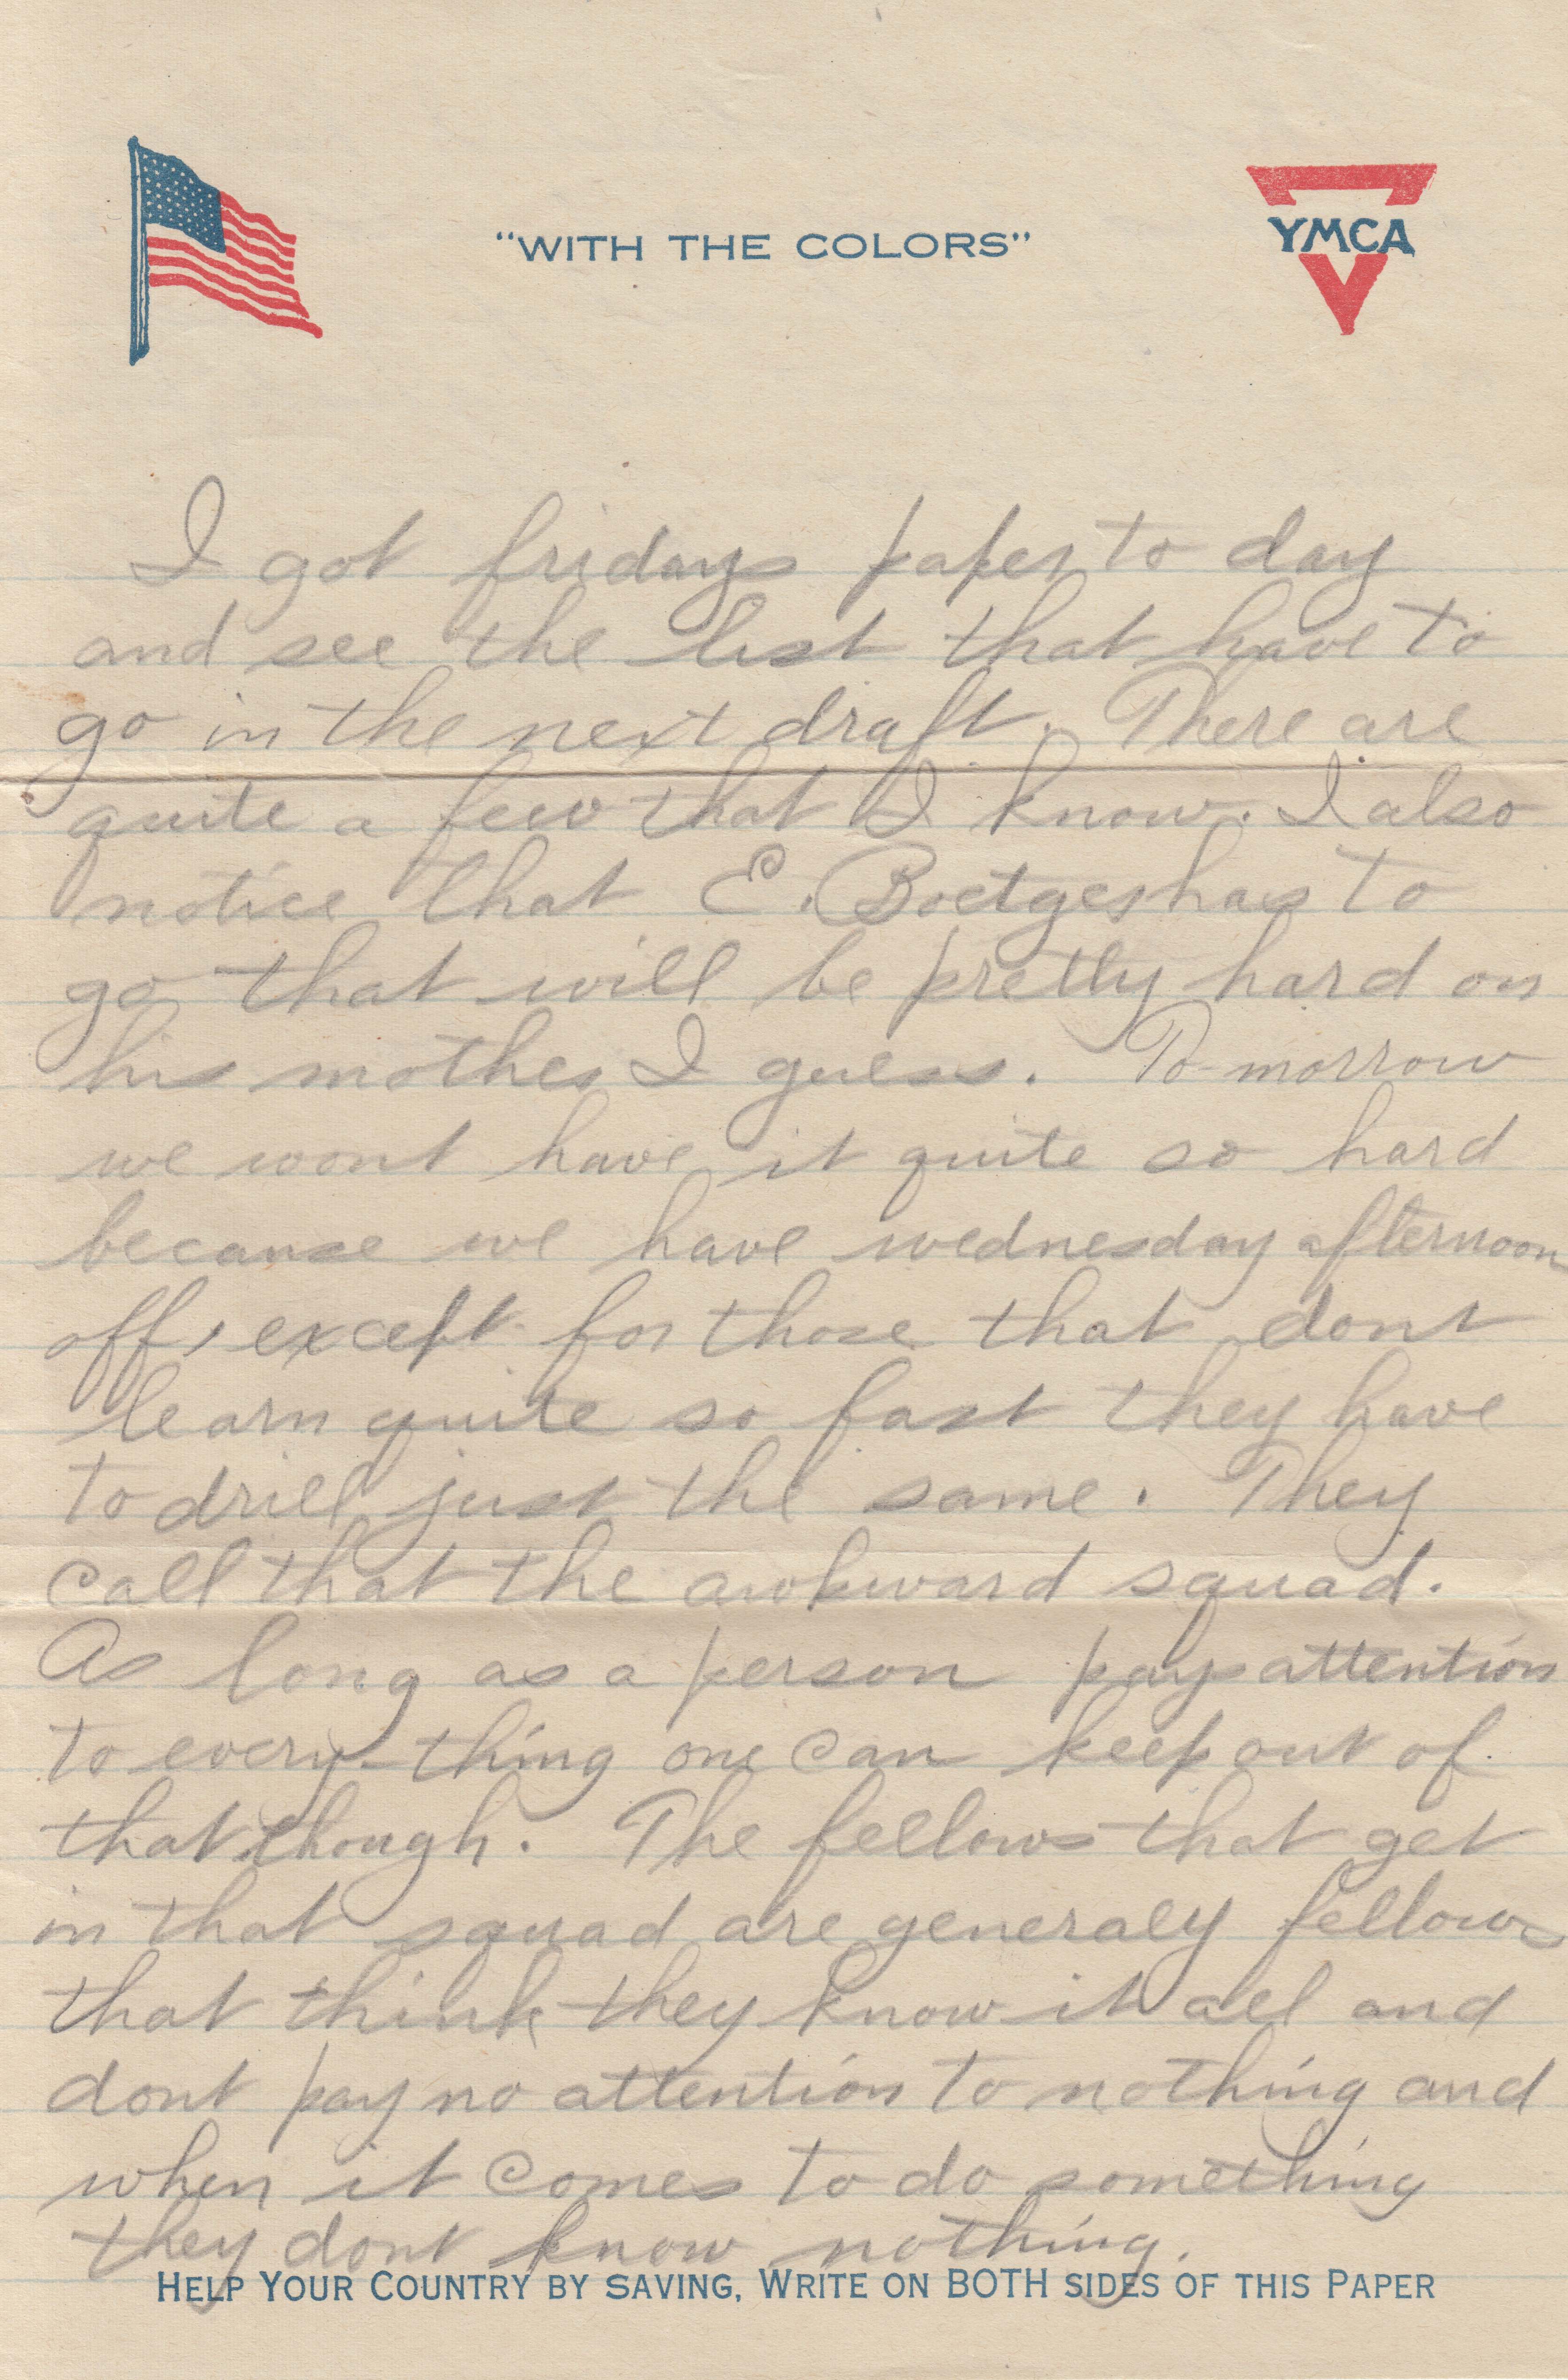 "WITH THE COLORS"
YMCA
I got fridays paper to day
and see the list that have to
go in the next draft. There are
quite a few that I know. I also
notice that E. Boetges has to
go that will be pretty hard on
his mother I guess. To-morrow
we wont have it quite so hard
because we have wednesday afternoon
off, except for those that dont
learn quite so fast they have
to drill just the same. They
call that the awkward squad.
As long as a person pays attention
to every-thing one can keep out of
that though. The fellows that get
in that squad are generaly fellows
that think they know it all and
dont pay no attention to nothing and
when it comes to do something
they dont know nothing.
HELP YOUR COUNTRY BY SAVING, WRITE ON BOTH SIDES OF THIS PAPER